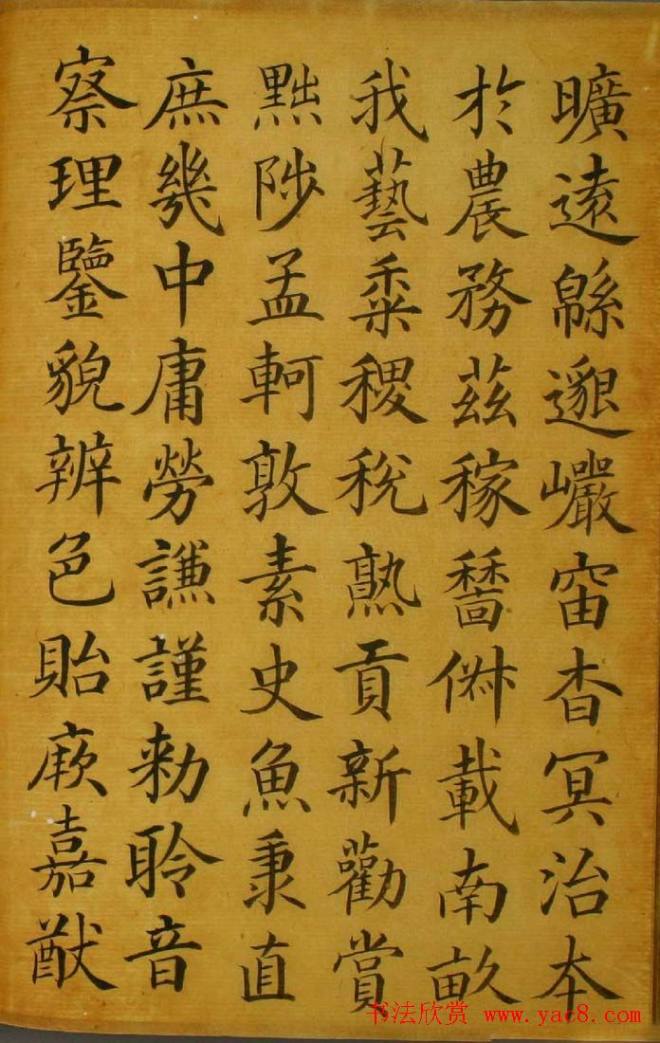 曠遠緜邈巖宙杳冥治本
於農務茲稼穡俶載南畝
我藝黍稷稅熟貢新勸賞
黜陟孟軻敦素史魚秉直
庶幾中庸勞謙謹勅聆音
察理鑒貌辨色貽厥嘉猷
书法欣赏 www.yac8.com